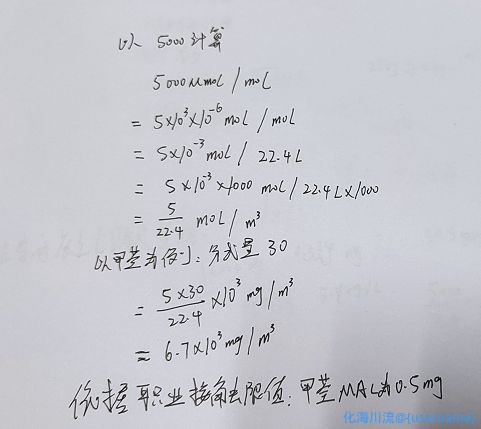 以 5000计算
5000μmol/mol
= 5×10³×10⁻⁶ mol/mol
= 5×10⁻³ mol/22.4L
= 5×10⁻³×1000 mol/22.4L×1000
= 5/22.4 mol/m³
以甲荃为例:分式量 30
= 5×30/22.4 ×10³ mg/m³
= 6.7×10³ mg/m³
依据职业接角去限值:甲荃 MAC为0.5mg
化海川流@